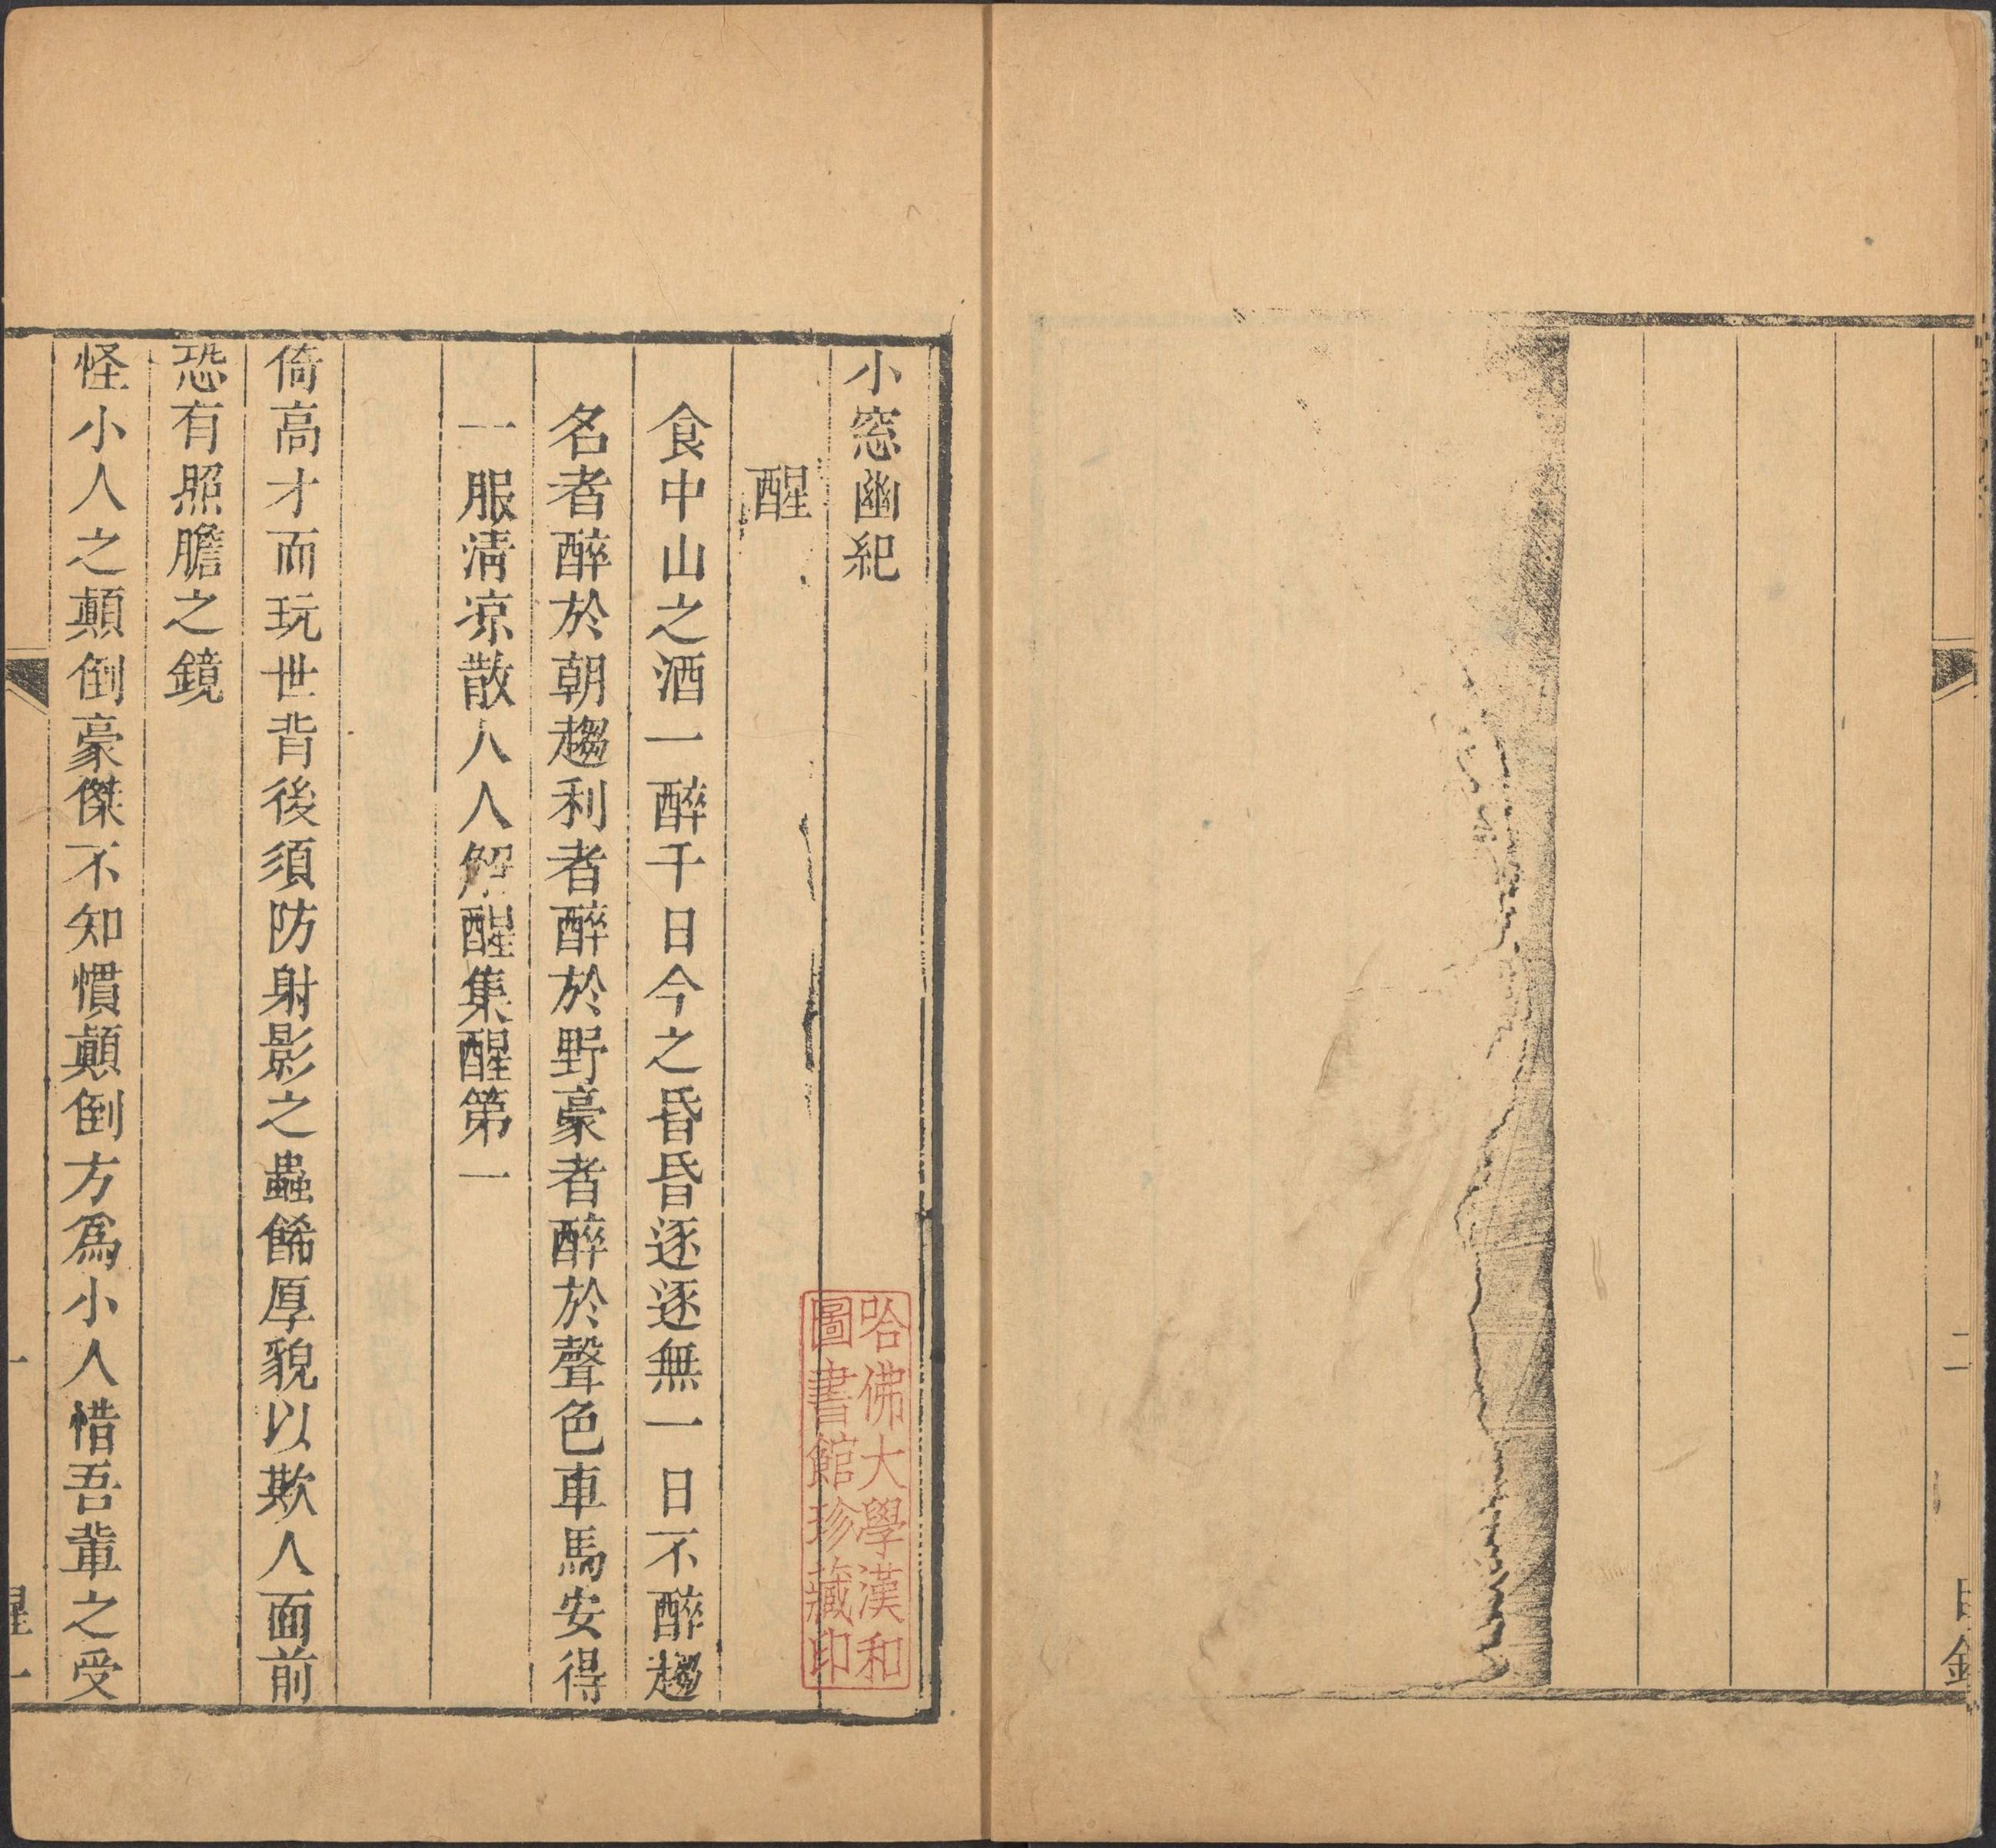 二
目錄
小窓幽紀
醒
食中山之酒一醉千日今之昏昏逐逐無一日不醉趨
名者醉於朝趨利者醉於野豪者醉於聲色車馬安得
一服清凉散人人解醒集醒第一
倚高才而玩世背後須防射影之蟲餙厚貌以欺人面前
恐有照膽之鏡
怪小人之顛倒豪傑不知慣顛倒方爲小人惜吾輩之受
一
醒一
哈佛大學漢和
圖書館珍藏印